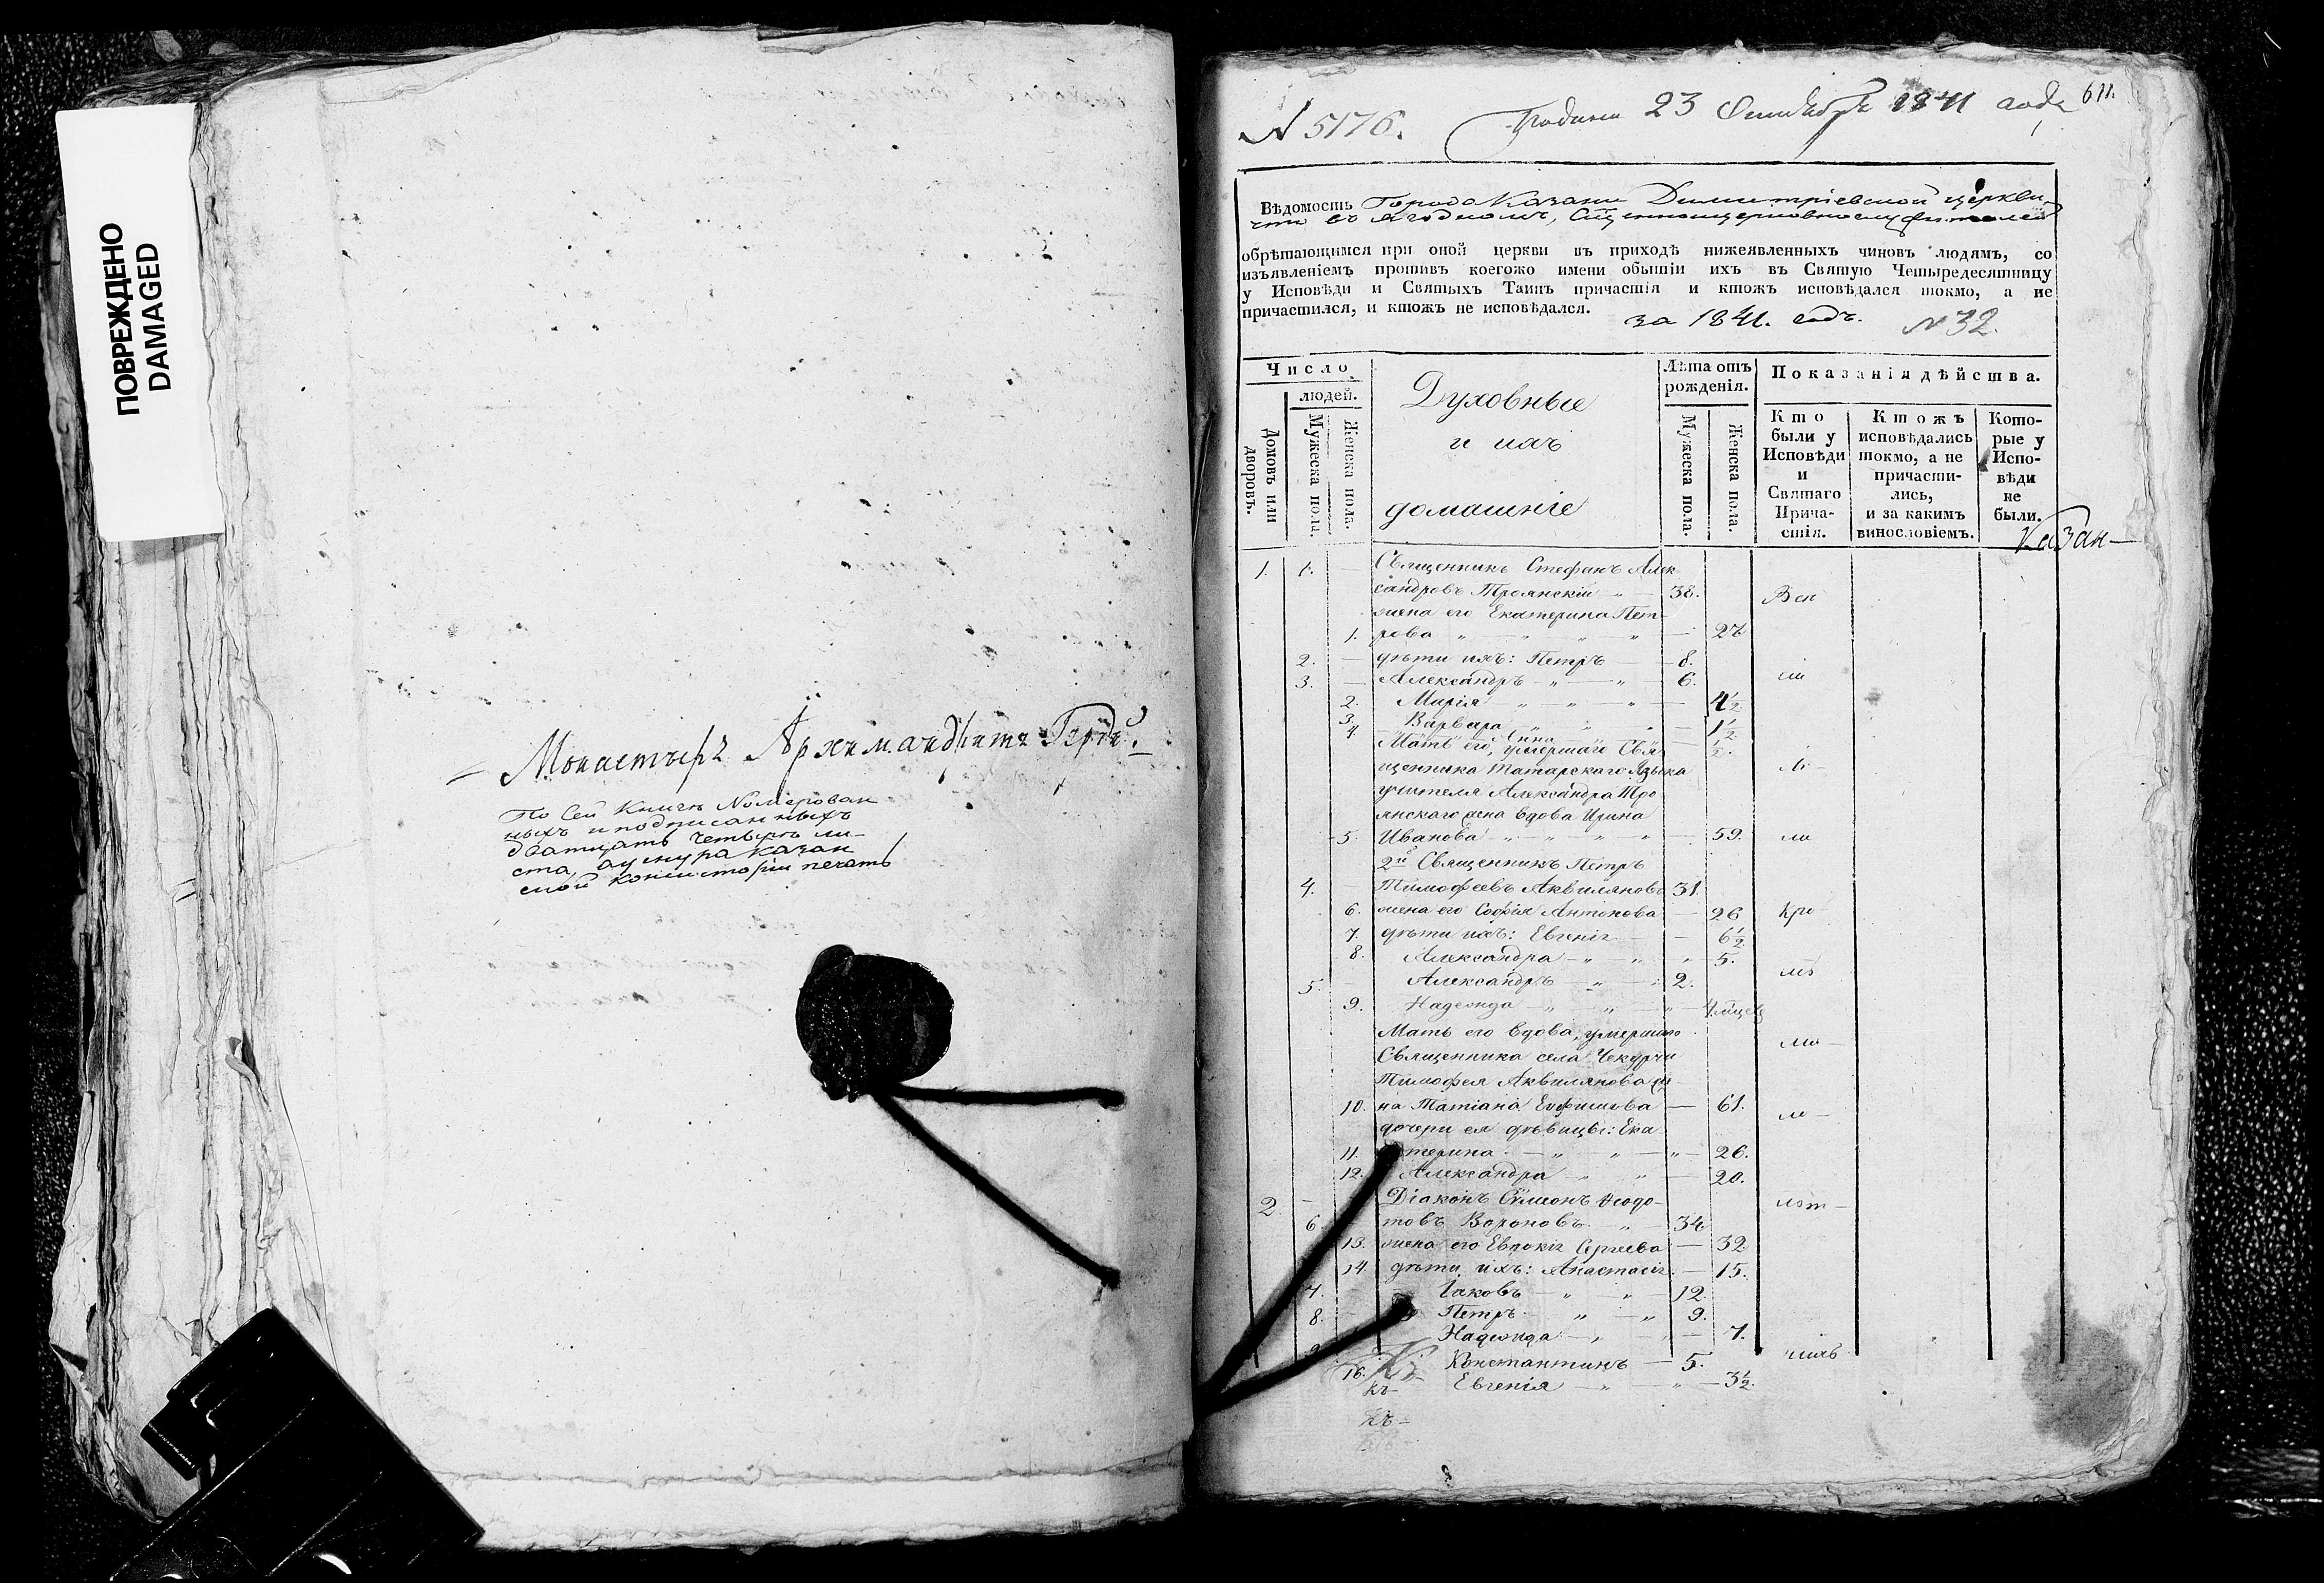 ПОВРЕЖДЕНО
DAMAGED
Монастырь Архимандритъ
По Сей Книгѣ Номерован
ныхъ и подписанныхъ
дватцать четыре ли-
ста, а у шнура казан
ской консисторіи печать
N 5176.
23 Сентября 1841 года
611.
Вѣдомость Города Казани Димитріевской церкви,
что въ Ягодномъ,
обрѣтающимся при оной церкви въ приходѣ нижеявленныхъ чиновъ людямъ, со
изъявленіемъ противъ коегожо имени бытіи ихъ въ Святую Четыредесятницу
у Исповѣди и Святыхъ Таинъ причастія и ктожъ исповѣдался токмо, а не
причастился, и ктожъ не исповѣдался.
за 1841. годъ. N 32.
Число
людей.
Домовъ или дворовъ.
Мужеска пола.
Женска пола.
Духовные
и ихъ
домашніе
Лѣта отъ рожденія.
Мужеска пола.
Женска пола.
Показанія дѣйства.
Кто были у Исповѣди и Святаго Причастія.
Ктожъ исповѣдались токмо, а не причастились, и за какимъ винословіемъ.
Которые у Исповѣди не были.
Казан-
1. 1. — Священникъ Стефанъ Алек-
сандровъ Троянскій — 38.
жена его Екатерина Пет-
1. рова — 27
2. — дѣти ихъ: Петръ — 8.
3. — Александръ — 6.
2. Марія — 4½
3. Варвара — 1½
4 Анна ½.
Мать его, умершаго Свя-
щенника Татарскаго Языка
учителя Александра Тро-
янскаго жена вдова Ирина
5. Иванова — 59.
2й Священникъ Петръ
4. — Тимофеевъ Аквиляновъ 31.
6. жена его Софія Антонова — 26
7. дѣти ихъ: Евгенія — 6½
8. Александра — 5.
5. — Александръ — 2.
9. Надежда — 4 мѣсяц
Мать его вдова, умершаго
Священника села Чекурчи
Тимофея Аквилянова же-
10. на Татіана Евфимова — 61.
дочери ея дѣвицы: Ека-
11. терина — 26.
12. Александра — 20.
2 — Діаконъ Симеонъ Ѳеодо-
6 товъ Вороновъ — 34
13. жена его Евдокія Сергеева — 32
14 дѣти ихъ: Анастасія — 15.
7. Іаковъ — 12.
8. Петръ — 9.
Надежда — 7.
9 Константинъ — 5.
16. Евгенія — 3½.
къ-